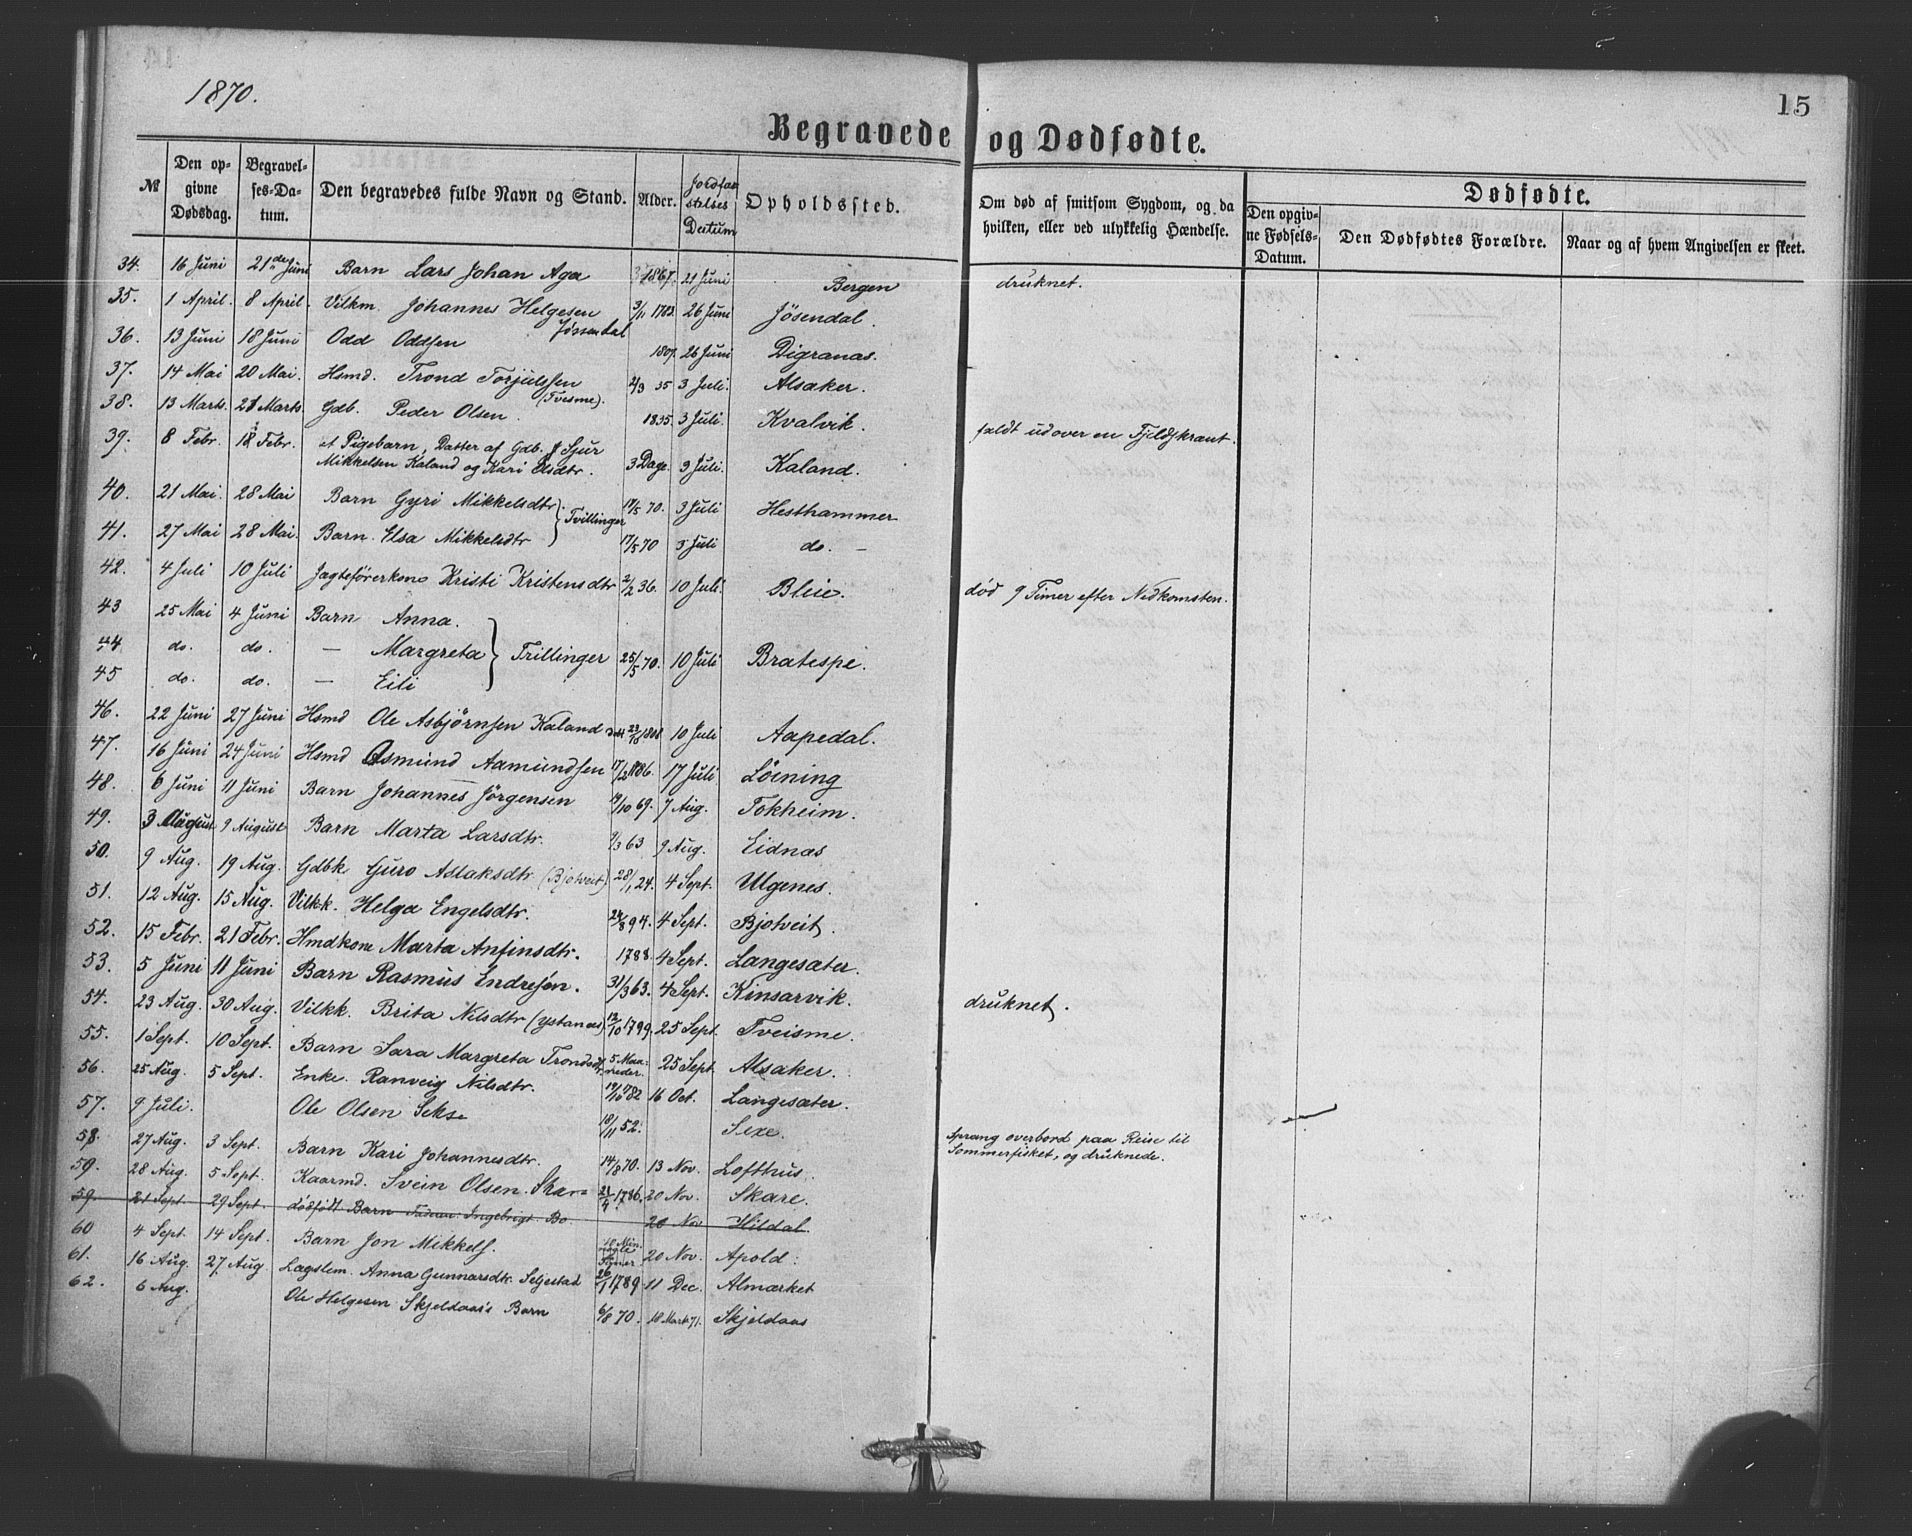 1870.
15
Begravede og Dødfødte.
№ Den opgivne Dødsdag. Begravelses-Datum. Den begravedes fulde Navn og Stand. Alder. Jordfæstelses Datum Opholdssted. Om død af smitsom Sygdom, og da hvilken, eller ved ulykkelig Hændelse. Dødfødte. Den opgivne Fødsels-Datum. Den Dødfødtes Forældre. Naar og af hvem Angivelsen er skeet.
34. 16 Juni 21de Juni Barn Lars Johan Aga 1867. 21 Juni Bergen druknet.
35. 1 April. 8 April. Vilkm. Johannes Helgesen Jøssendal 3/11 1783. 26 Juni Jösendal.
36. 13 Juni 18 Juni Odd Oddsen 1807. 26 Juni Digranas.
37. 14 Mai 20 Mai. Hsmd. Trond Torjulssen (Tvesme). 2/3 35 3 Juli. Alsaker.
38. 13 Marts. 21 Marts. Gdb. Peder Olsen. 1835. 3 Juli. Kvalvik. faldt udover en Fjeldskrænt.
39. 8 Febr. 18 Febr. et Pigebarn, Datter af Gdb. Sjur
Mikkelsen Kaland og Kari Olsdtr. 3 Dage. 3 Juli. Kaland.
40. 21 Mai. 28 Mai Barn Gyri Mikkelsdtr } Tvillinger 17/5 70. 3 Juli Hesthammer
41. 27 Mai 28 Mai. Barn. Elsa Mikkelsdtr 17/5 70 3 Juli do. —
42. 4 Juli 10 Juli Jægteförerkone Kristi Kristensdtr 2/2 36. 10 Juli. Bleie. død 9 Timer efter Nedkomsten.
43 25 Mai 4 Juni Barn Anna.
44. do. do. — Margreta } Trillinger 25/5 70. 10 Juli Bratespe.
45 do. do. — Eili
46. 22 Juni 27 Juni Hsmd Ole Asbjörnsen Kaland 1808 10 Juli Aapedal.
47. 16 Juni 24 Juni Hsmd Osmund Aamundsen 17/2 86. 17 Juli Löining
48. 6 Juni 11 Juni Barn Johannes Jörgensen 19/10 69. 7 Aug. Tokheim.
49. 3 August 9 August Barn Marta Larsdtr. 9/3 63 9 Aug. Eidnas
50. 9 Aug. 19 Aug. Gdbk. Guro Aslaksdtr (Bjotveit) 28/1 24. 4 Sept. Ulgenes.
51. 12 Aug. 15 Aug. Vilkk. Helga Engelsdtr. 24/8 94. 4 Sept. Bjotveit.
52. 15 Febr. 21 Febr. Hmdkone Marta Anfinsdtr. 1788. 4 Sept. Langesæter.
53. 5 Juni 11 Juni Barn Rasmus Endresøn. 31/3 63. 4 Sept. Kinsarvik. druknet.
54. 23 Aug. 30 Aug. Vilkk. Brita Nilsdtr (Ystanæs) 12/10 1799. 25 Sept. Tveisme.
55. 1 Sept. 10 Sept. Barn Sara Margreta Trondsdtr. 5 Maaneder. 25 Sept. Alsaker.
56. 25 Aug. 5 Sept. Enke. Ranveig Nilsdtr. 19/10 782 16 Oct. Langesæter.
57. 9 Juli. Ole Olsen Sekse 18/11 52. Sexe. Sprang overbord paa Reise til
Sommerfisket, og druknede.
58. 27 Aug. 3 Sept. Barn Kari Johannesdtr. 14/8 70. 13 Nov. Lofthus.
59. 28 Aug. 5 Sept. Kaarmd. Svein Olsen. Skare 21/4 1786. 20 Nov. Skare.
59. 21 Sept. 29 Sept. dödfödt Barn Faderen: Ingebrigt Bo 20 Nov Hildal.
60 4 Sept. 14 Sept. Barn Jon Mikkels. 20 Nov. Apold.
61. 16 Aug. 27 Aug. Lægslem. Anna Gunnarsdtr. Seljestad 26/1 1789 11 Dec. Almærket
62. 6 Aug. Ole Helgesen Skjeldaas's Barn 6/8 70. 18 Marts 71. Skjeldaas